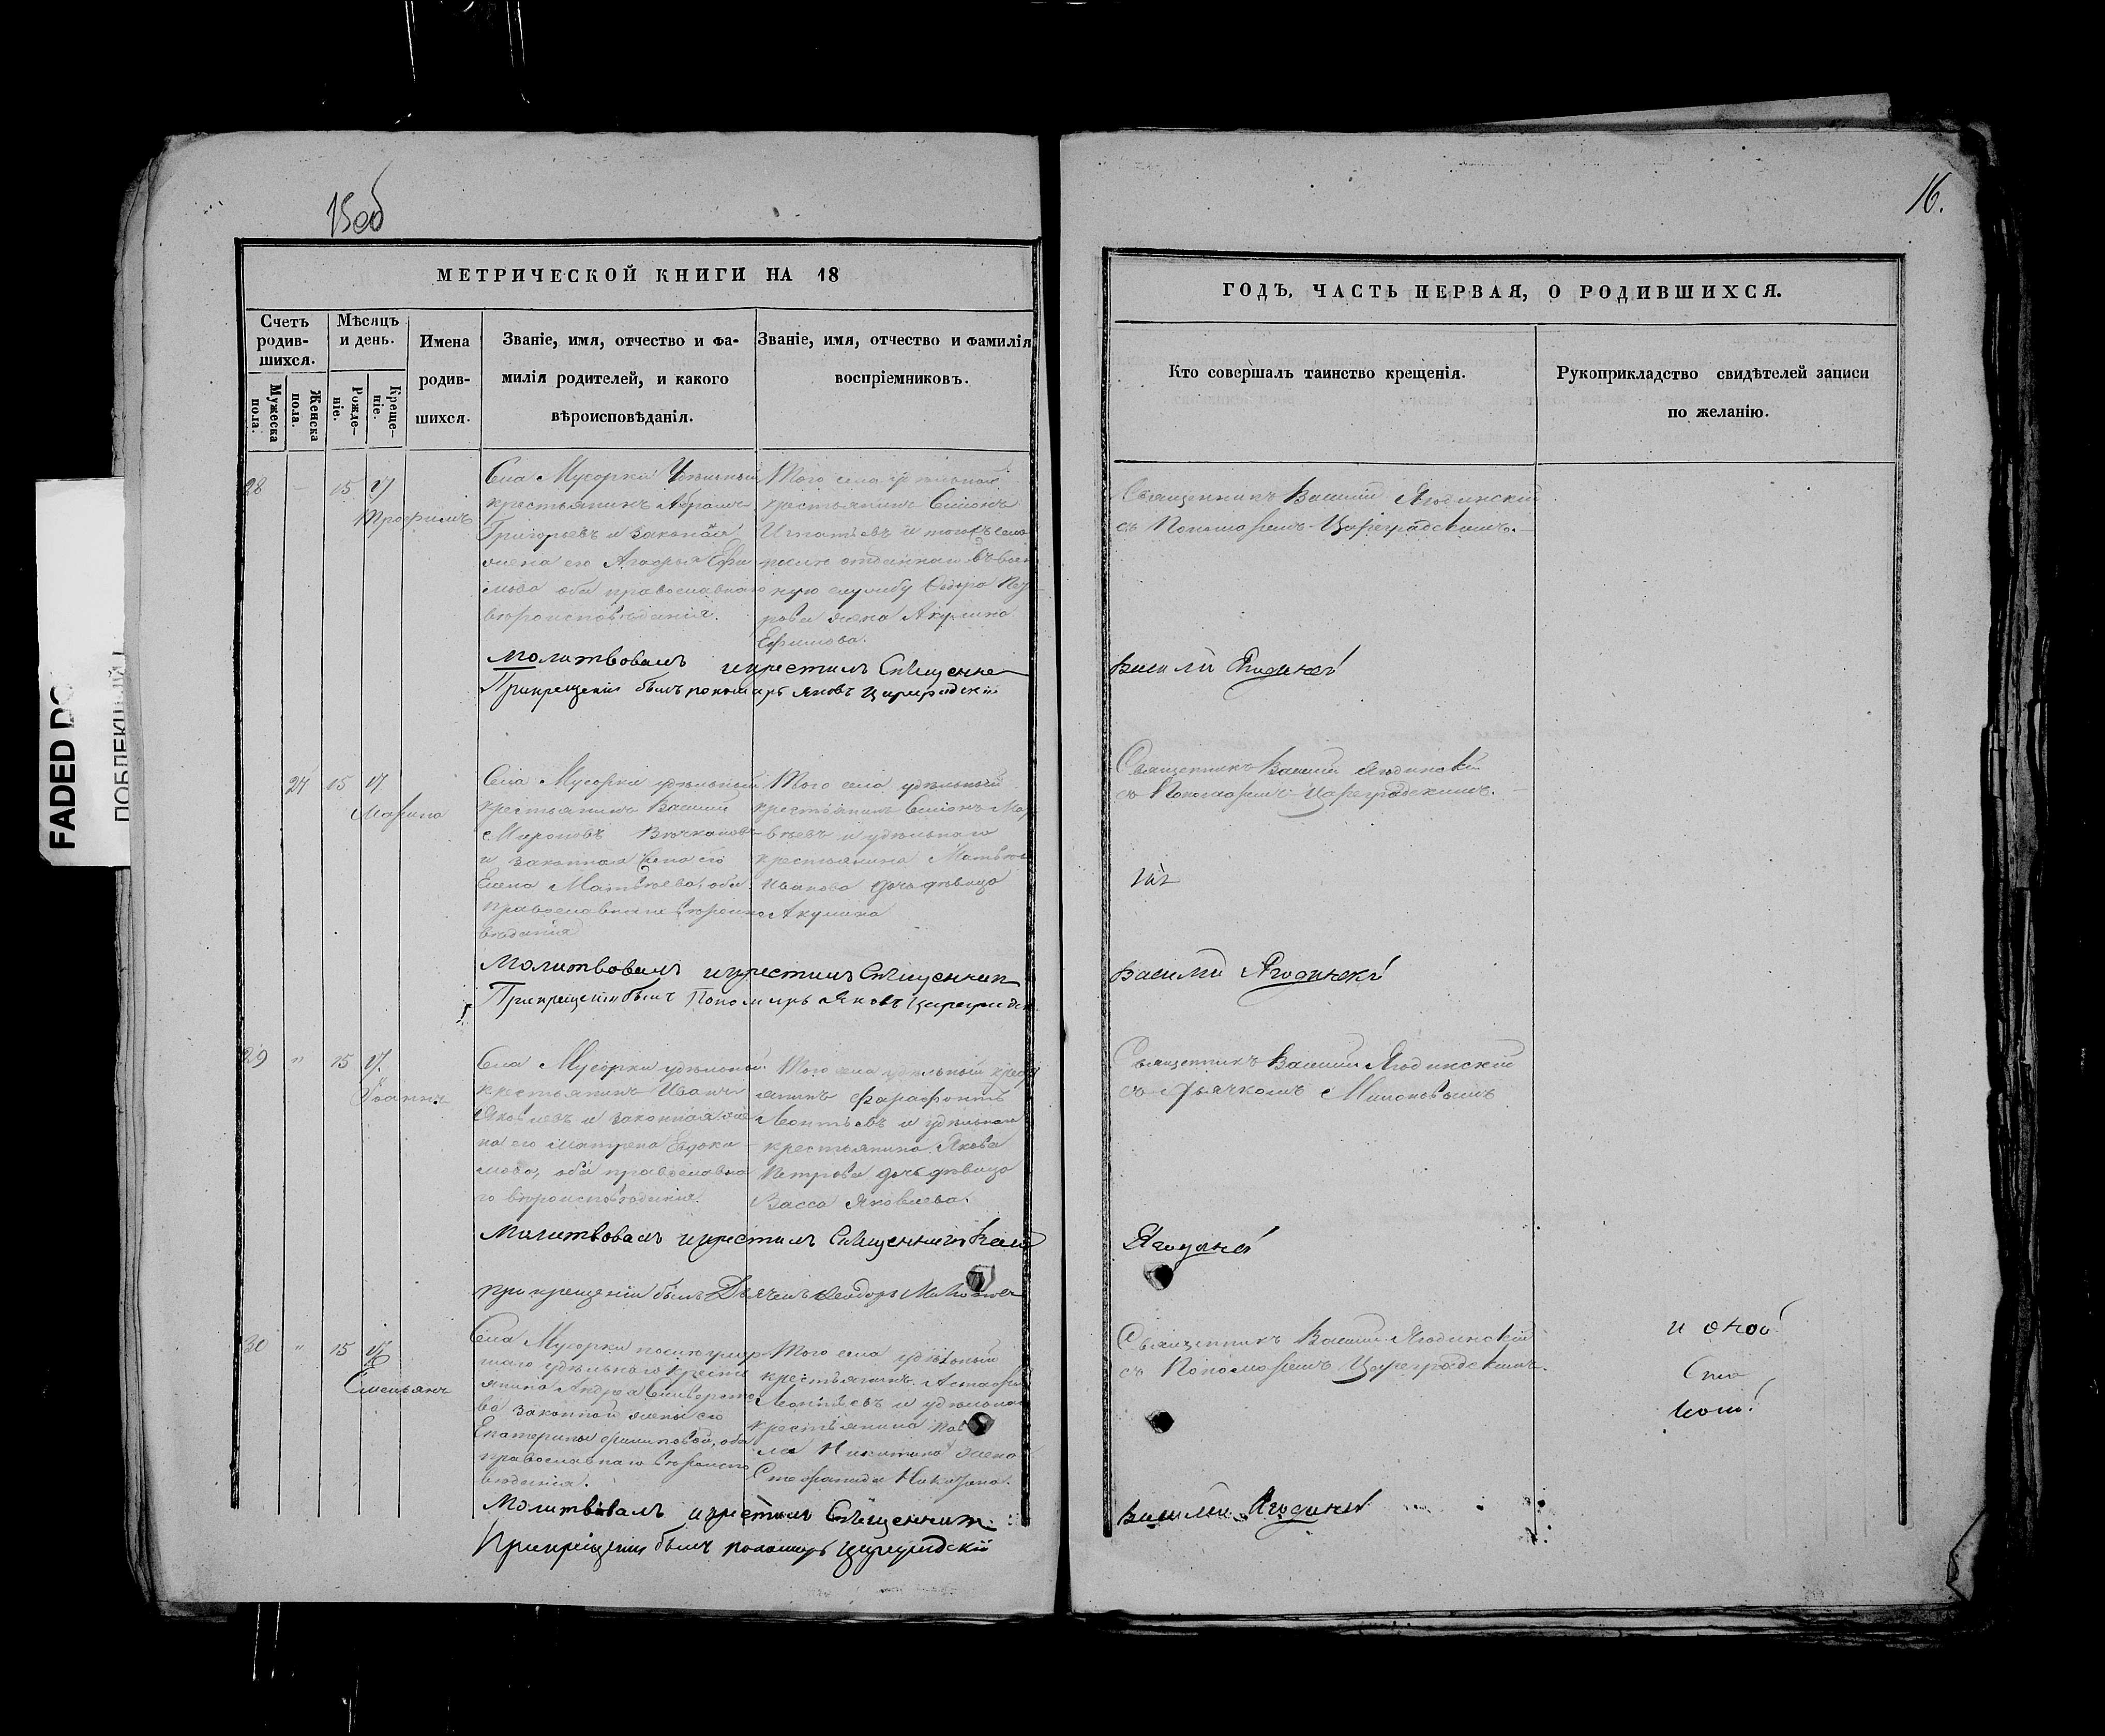 15 об
МЕТРИЧЕСКОЙ КНИГИ НА 18
Счетъ родив-шихся.
Мѣсяцъ и день.
Имена родив-шихся.
Званіе, имя, отчество и фа-милія родителей, и какого вѣроисповѣданія.
Званіе, имя, отчество и фамилія воспріемниковъ.
Мужеска пола.
Женска пола.
Рожде-ніе.
Креще-ніе.
28 - 15 17
Трофимъ
Села Мусорки Удѣльный
крестьянинъ Абрамъ
Григорьевъ и законная
жена его Агафья Ефи
мова оба православнаго
вѣроисповѣданія.
Того села удѣльный
крестьянинъ Симонъ
Игнатьевъ и того села
отданнаго въ воен
ную службу Ѳедора Пет
рова жена Акулина
Ефимова.
Молитвовалъ и крестилъ Священни
При крещеніи былъ пономарь Яковъ Цареградскій
27 15 17
Марина
Села Мусорки удѣльный
крестьянинъ Василій
Мироновъ
и законная жена его
Елена Матвѣева, оба
православнаго вѣроиспо
вѣданія
Того села удѣльный
крестьянинъ Симонъ Мат
вѣевъ и удѣльнаго
крестьянина Матвѣя
Иванова дочь дѣвица
Акулина
Молитвовалъ и крестилъ Священник
При крещеніи былъ Пономарь Яковъ Цареградск
29 " 15 17.
Іоаннъ
Села Мусорки удѣльный
крестьянинъ Иванъ
Яковлевъ и законная же
на его Матрена Евдоки
мова, оба православна
го вѣроисповѣданія.
Того села удѣльный крест
янинъ Фарафонтъ
Леонтьевъ и удѣльнаго
крестьянина Якова
Петрова дочь дѣвица
Васса Яковлева.
Молитвовалъ и крестилъ Священникъ Васи
при крещеніи былъ Дьячекъ Ѳеодоръ
30 " 15 17
Емельянъ
Села Мусорки послѣ умер
шаго удѣльнаго кресть
янина Андрея Сильверсто
ва законной жены его
Екатерины Филиповой, оба
православнаго вѣроиспо
вѣданія.
Того села удѣльный
крестьянинъ Астафій
Леонтьевъ и удѣльнаго
крестьянина Пав
ла Никитина жена
Стефанида Никифорова.
Молитвовалъ и крестилъ Священник
При крещеніи былъ пономарь Цареградскій
16.
ГОДЪ, ЧАСТЬ ПЕРВАЯ, О РОДИВШИХСЯ.
Кто совершалъ таинство крещенія.
Рукоприкладство свидѣтелей записи по желанію.
Священникъ Василій Ягодинскій
съ Пономаремъ Цареградскимъ.
Василій Ягодинскій
Священникъ Василій Ягодинскій
съ Пономаремъ Цареградскимъ.
Василій Ягодинскій
Священникъ Василій Ягодинскій
съ Дьячкомъ
Ягодинскій
Священникъ Василій Ягодинскій
съ Пономаремъ Цареградскимъ.
Василій Ягодинскій
FADED DO